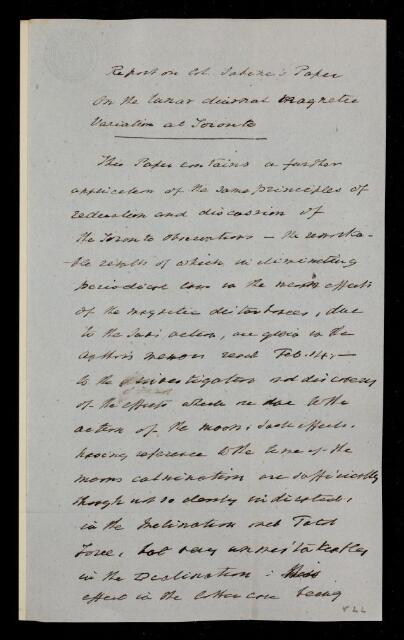 Report on Col. Sabine's Paper
On the lunar diurnal magnetic
Variation at Toronto
This Paper contains a further
application of the same principles of
reduction and discussion of
the Toronto Observations — the remarka-
-ble results of which in eliminating
periodical laws in the mean effects
of the magnetic disturbances, due
to the Sun's action, are given in the
Author's memoir read Feb. 14, —
to the investigation and discovery
of the effects which are due to the
action of the moon. Such effects,
having reference to the time of the
moons culmination are sufficiently
though not so clearly indicated,
in the Inclination and Total
Force, but very unmistakeably
in the Declination: this
effect in the latter case being